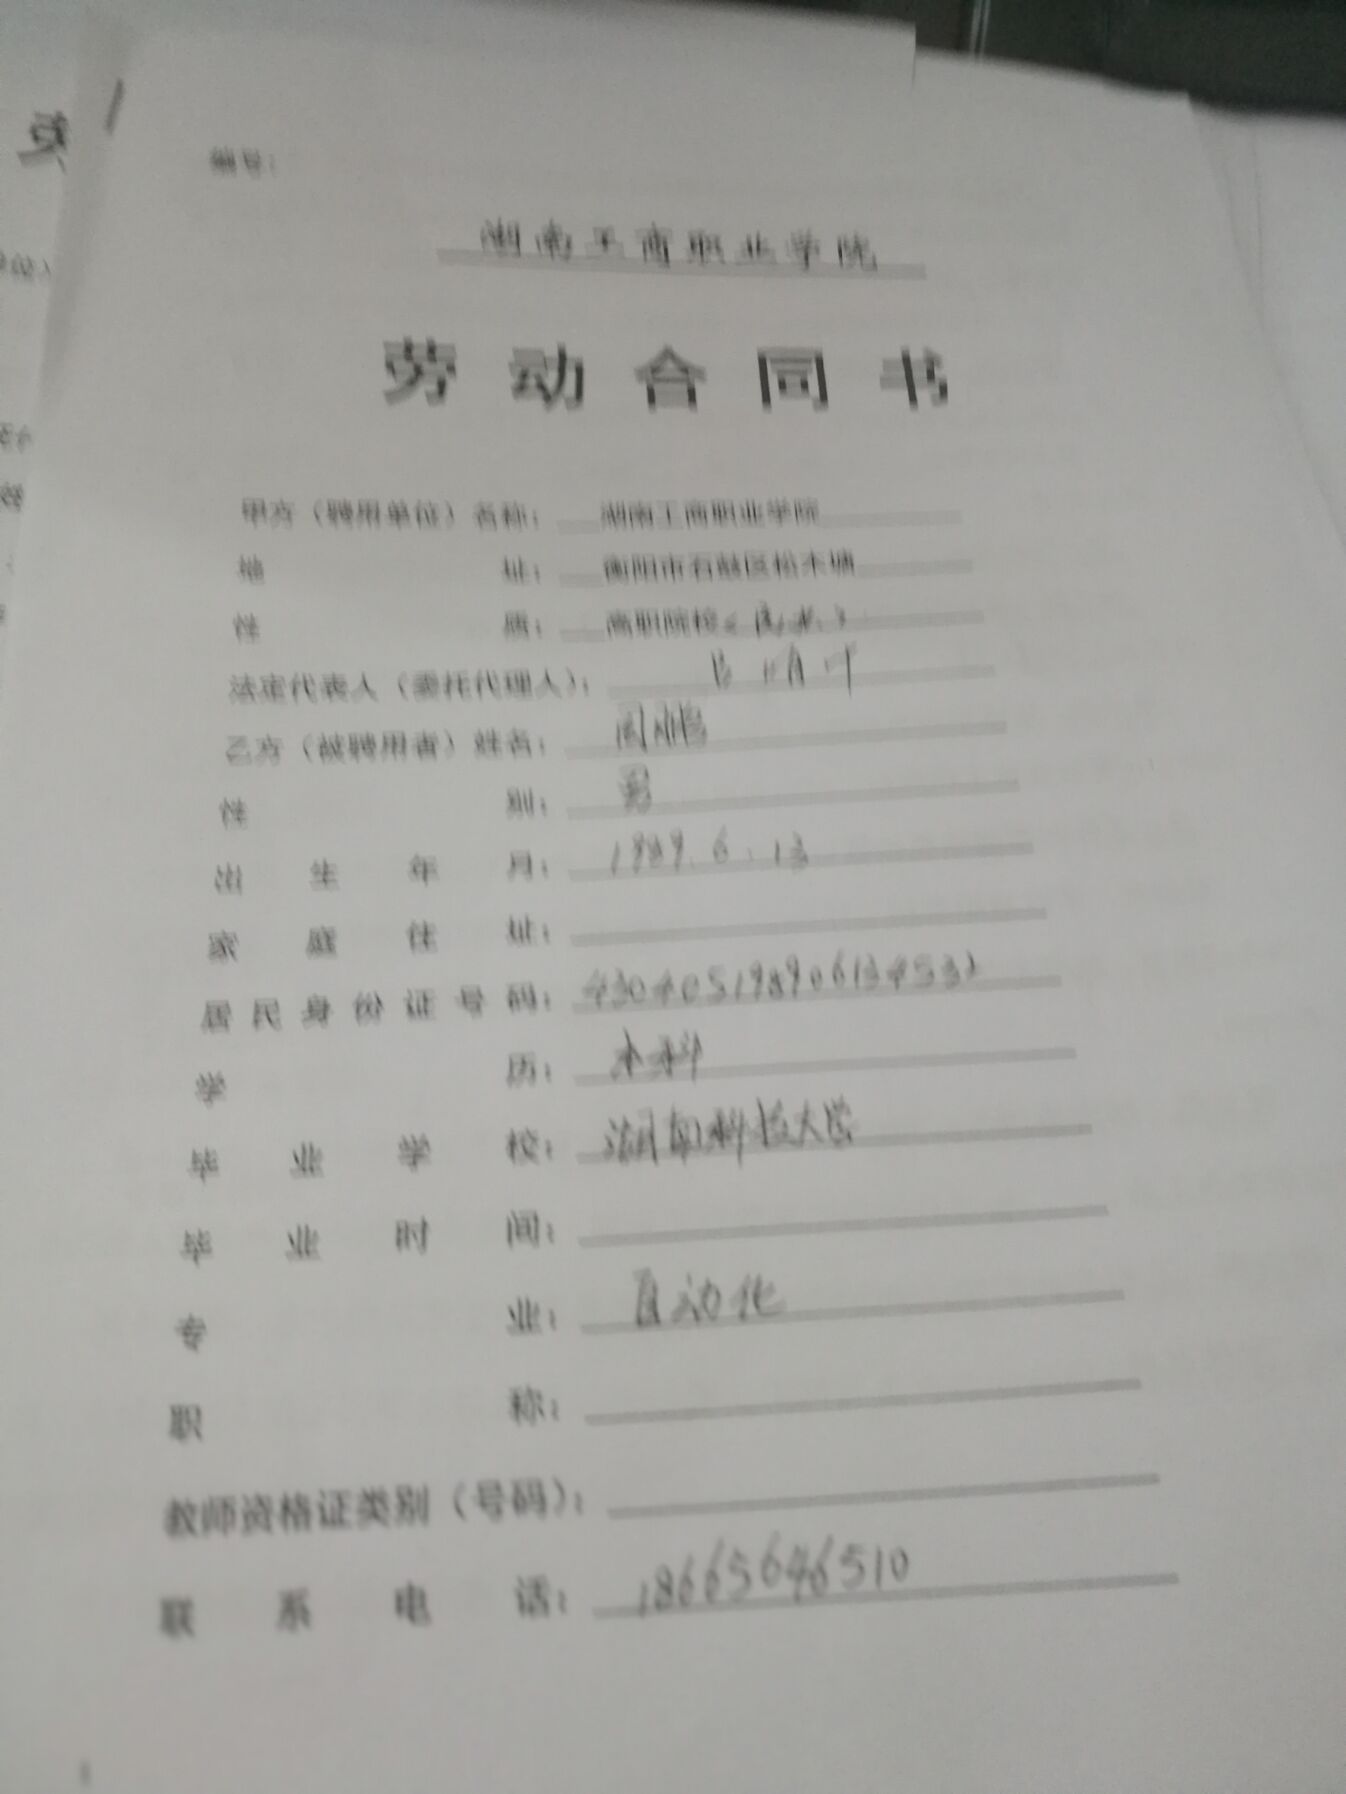 编号：
湖南工商职业学院
劳动合同书
甲方（聘用单位）名称： 湖南工商职业学院
地址： 衡阳市石鼓区松木塘
性质： 高职院校（民办）
法定代表人（委托代理人）：
乙方（被聘用者）姓名：
性别： 男
出生年月： 1989.6.13
家庭住址：
居民身份证号码： 430405198906134532
学历： 本科
毕业学校： 湖南科技大学
毕业时间：
专业： 自动化
职称：
教师资格证类别（号码）：
联系电话： 18665646510